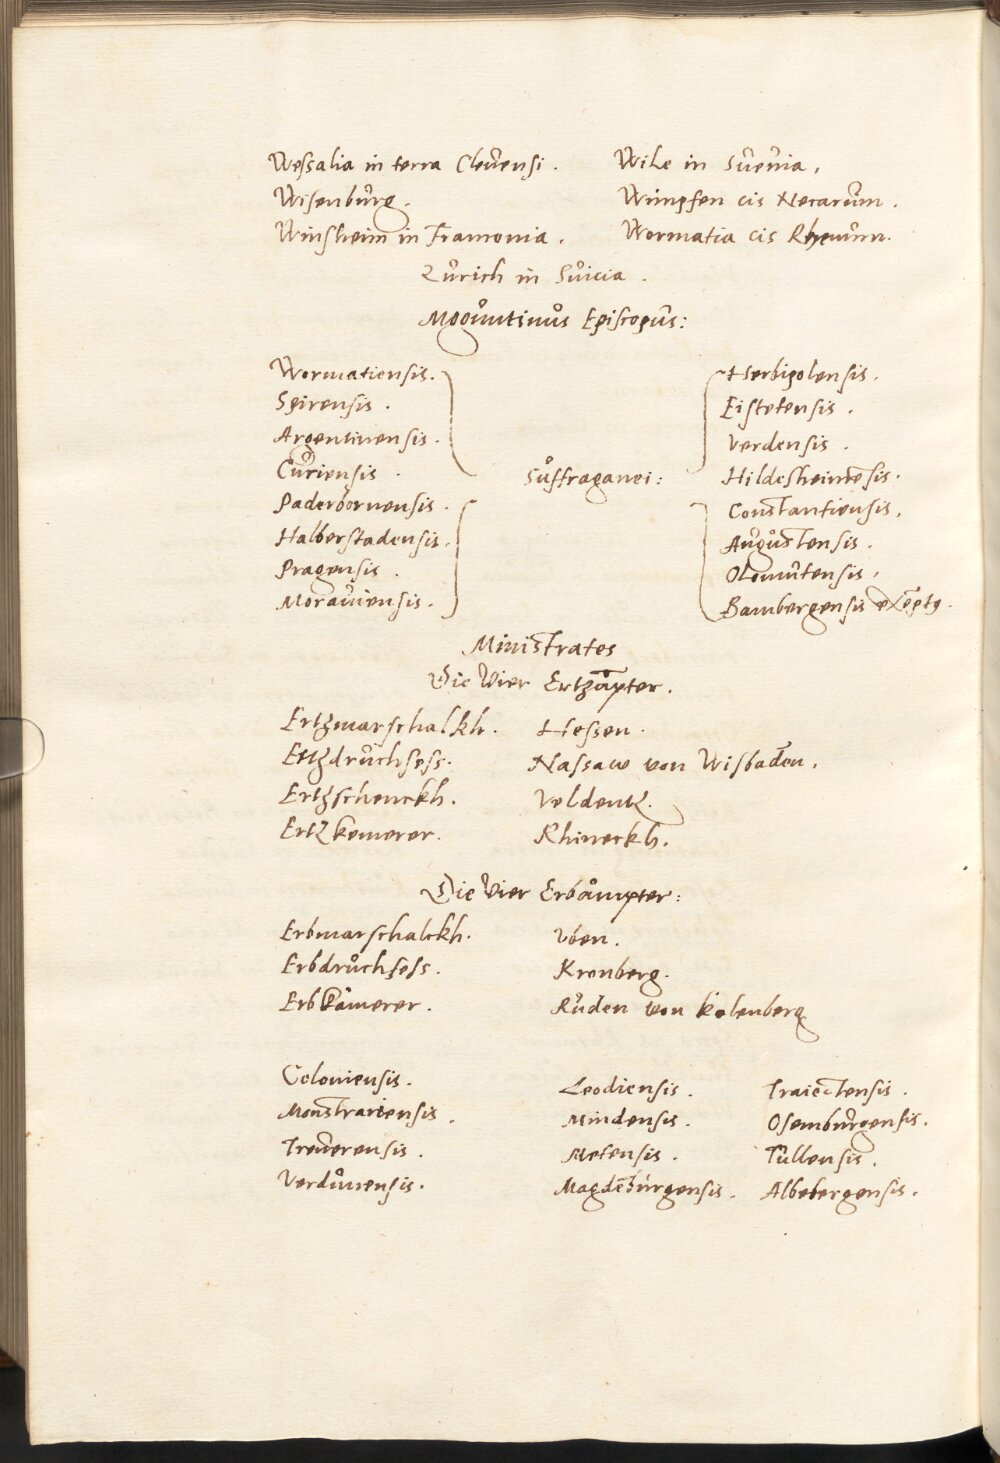 Wessalia in terra Cleuensi. Wile in Sueuia,
Wisenburg. Wimpfen cis Necarum.
Winsheim in Framonia. Wormatia cis Rhenum.
Zurich in Suicia.
Moguntinus Episcopus:
Wormatiensis. Herbipolensis.
Spirensis. Eistetensis.
Argentinensis. Verdensis.
Curiensis. Suffraganei: Hildesheimensis.
Paderbornensis. Constantiensis.
Halberstadensis. Augustensis.
Pragensis. Olomutensis,
Morauiensis. Bambergensis
Ministrates
Die Vier Ertzāpter.
Ertzmarschalkh. Hessen.
Ertzdruchsess. Nassaw von Wisbaden.
Ertzschenckh. Veldentz.
Ertzkemerer. Rhineckh.
Die Vier Erbämpter:
Erbmarschalckh. Vben.
Erbdruchsess. Kronberg.
Erbkämerer. Ruden von Kolenberg
Coloniensis. Leodiensis. Traiectensis.
Monstrariensis. Mindensis. Osemburgensis.
Treuerensis. Metensis. Tullensis.
Verdunensis. Magdeburgensis. Albebergensis.